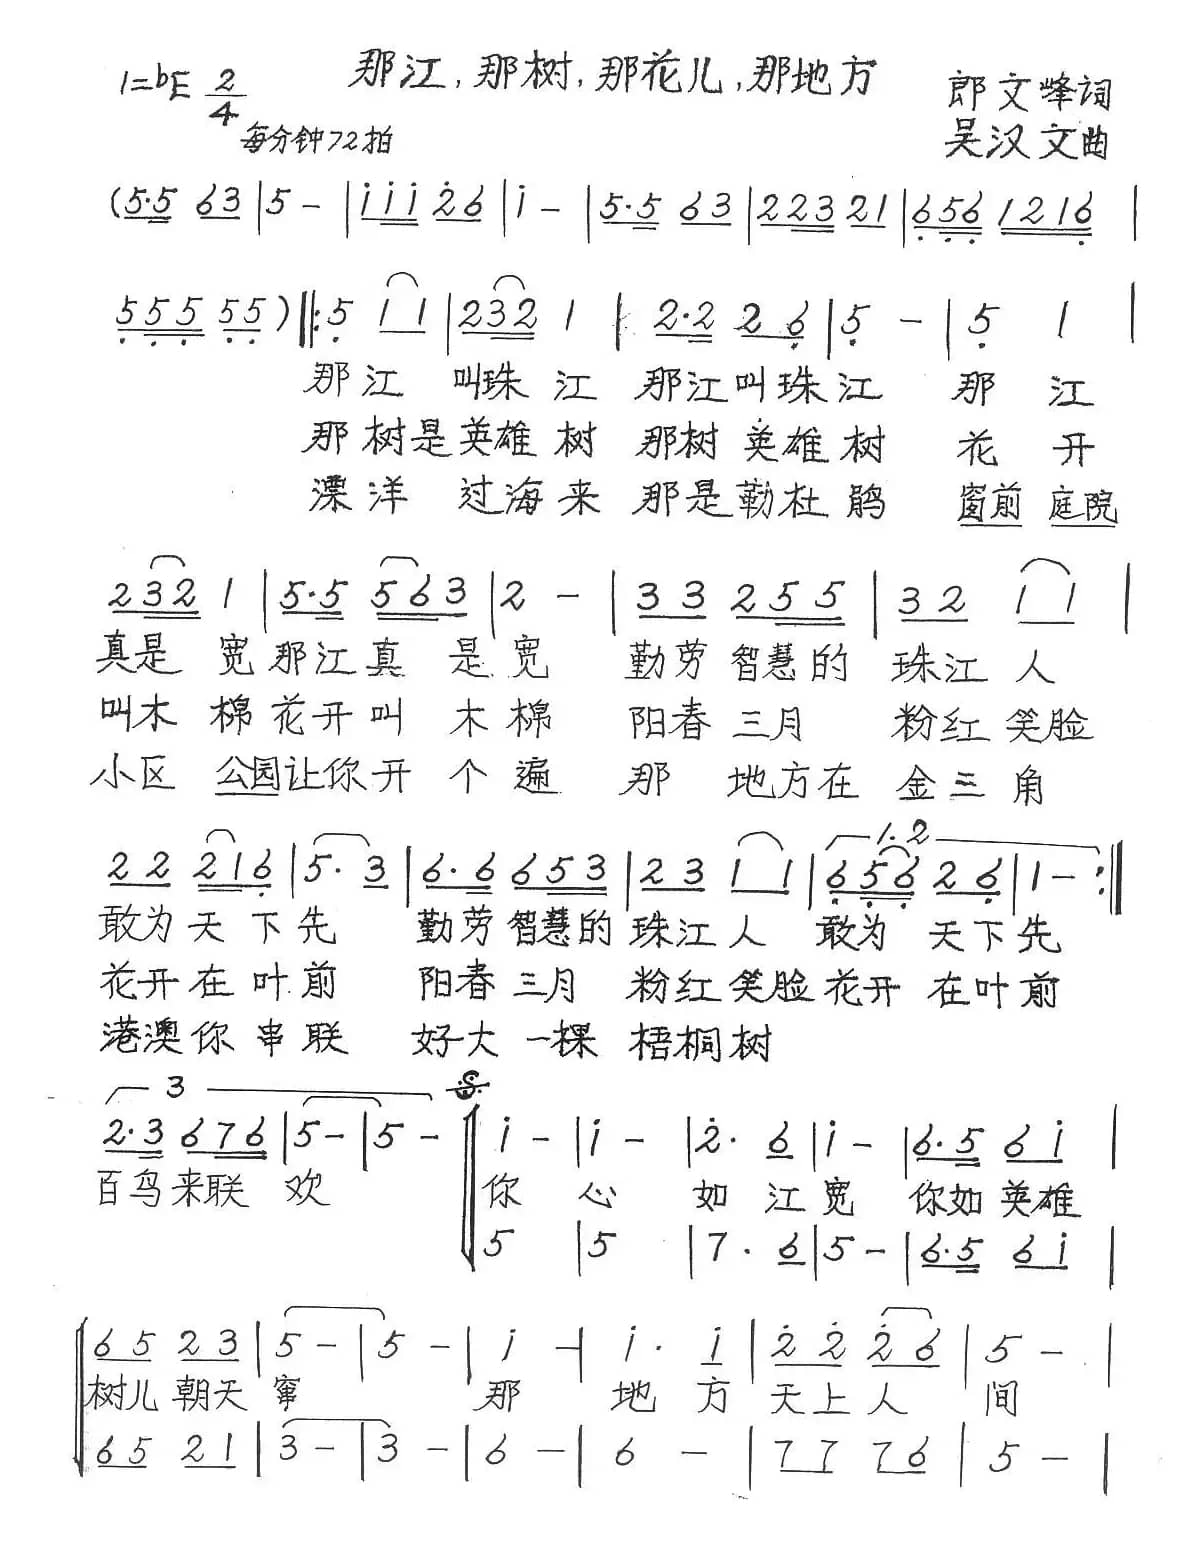 那江,那树,那花儿,那地方
1=bE 2/4
每分钟72拍
郎文峰词
吴汉文曲
(5·5 63|5 -|iii 26|i -|5·5 63|223 21|656 1216|
555 55)‖:5 11|232 1|2·2 26|5 -|5 1|
那江 叫珠江 那江叫珠江 那 江
那树是英雄树 那树英雄树 花 开
漂洋 过海来 那是勒杜鹃 窗前 庭院
232 1|5·5 563|2 -|33 255|32 11|
真是 宽那江真 是宽 勤劳智慧的 珠江人
叫木 棉花开叫 木棉 阳春三月 粉红笑脸
小区 公园让你开 个遍 那 地方在 金三角
1.2
22 216|5· 3|6·6 653|23 11|656 26|1 - :‖
敢为天下先 勤劳智慧的珠江人 敢为 天下先
花开在叶前 阳春三月 粉红笑脸花开 在叶前
港澳你串联 好大一棵 梧桐树
3
2·3 676|5 -|5 -|i -|i -|2· 6|i -|6·5 6i|
百鸟来联 欢 你 心 如 江宽 你如英雄
5 |5 |7· 6|5 -|6·5 6i|
65 23|5 -|5 -|i -|i· i|22 26|5 -|
树儿朝天窜 那 地方 天上人 间
65 21|3 -|3 -|6 -|6 -|77 76|5 -|